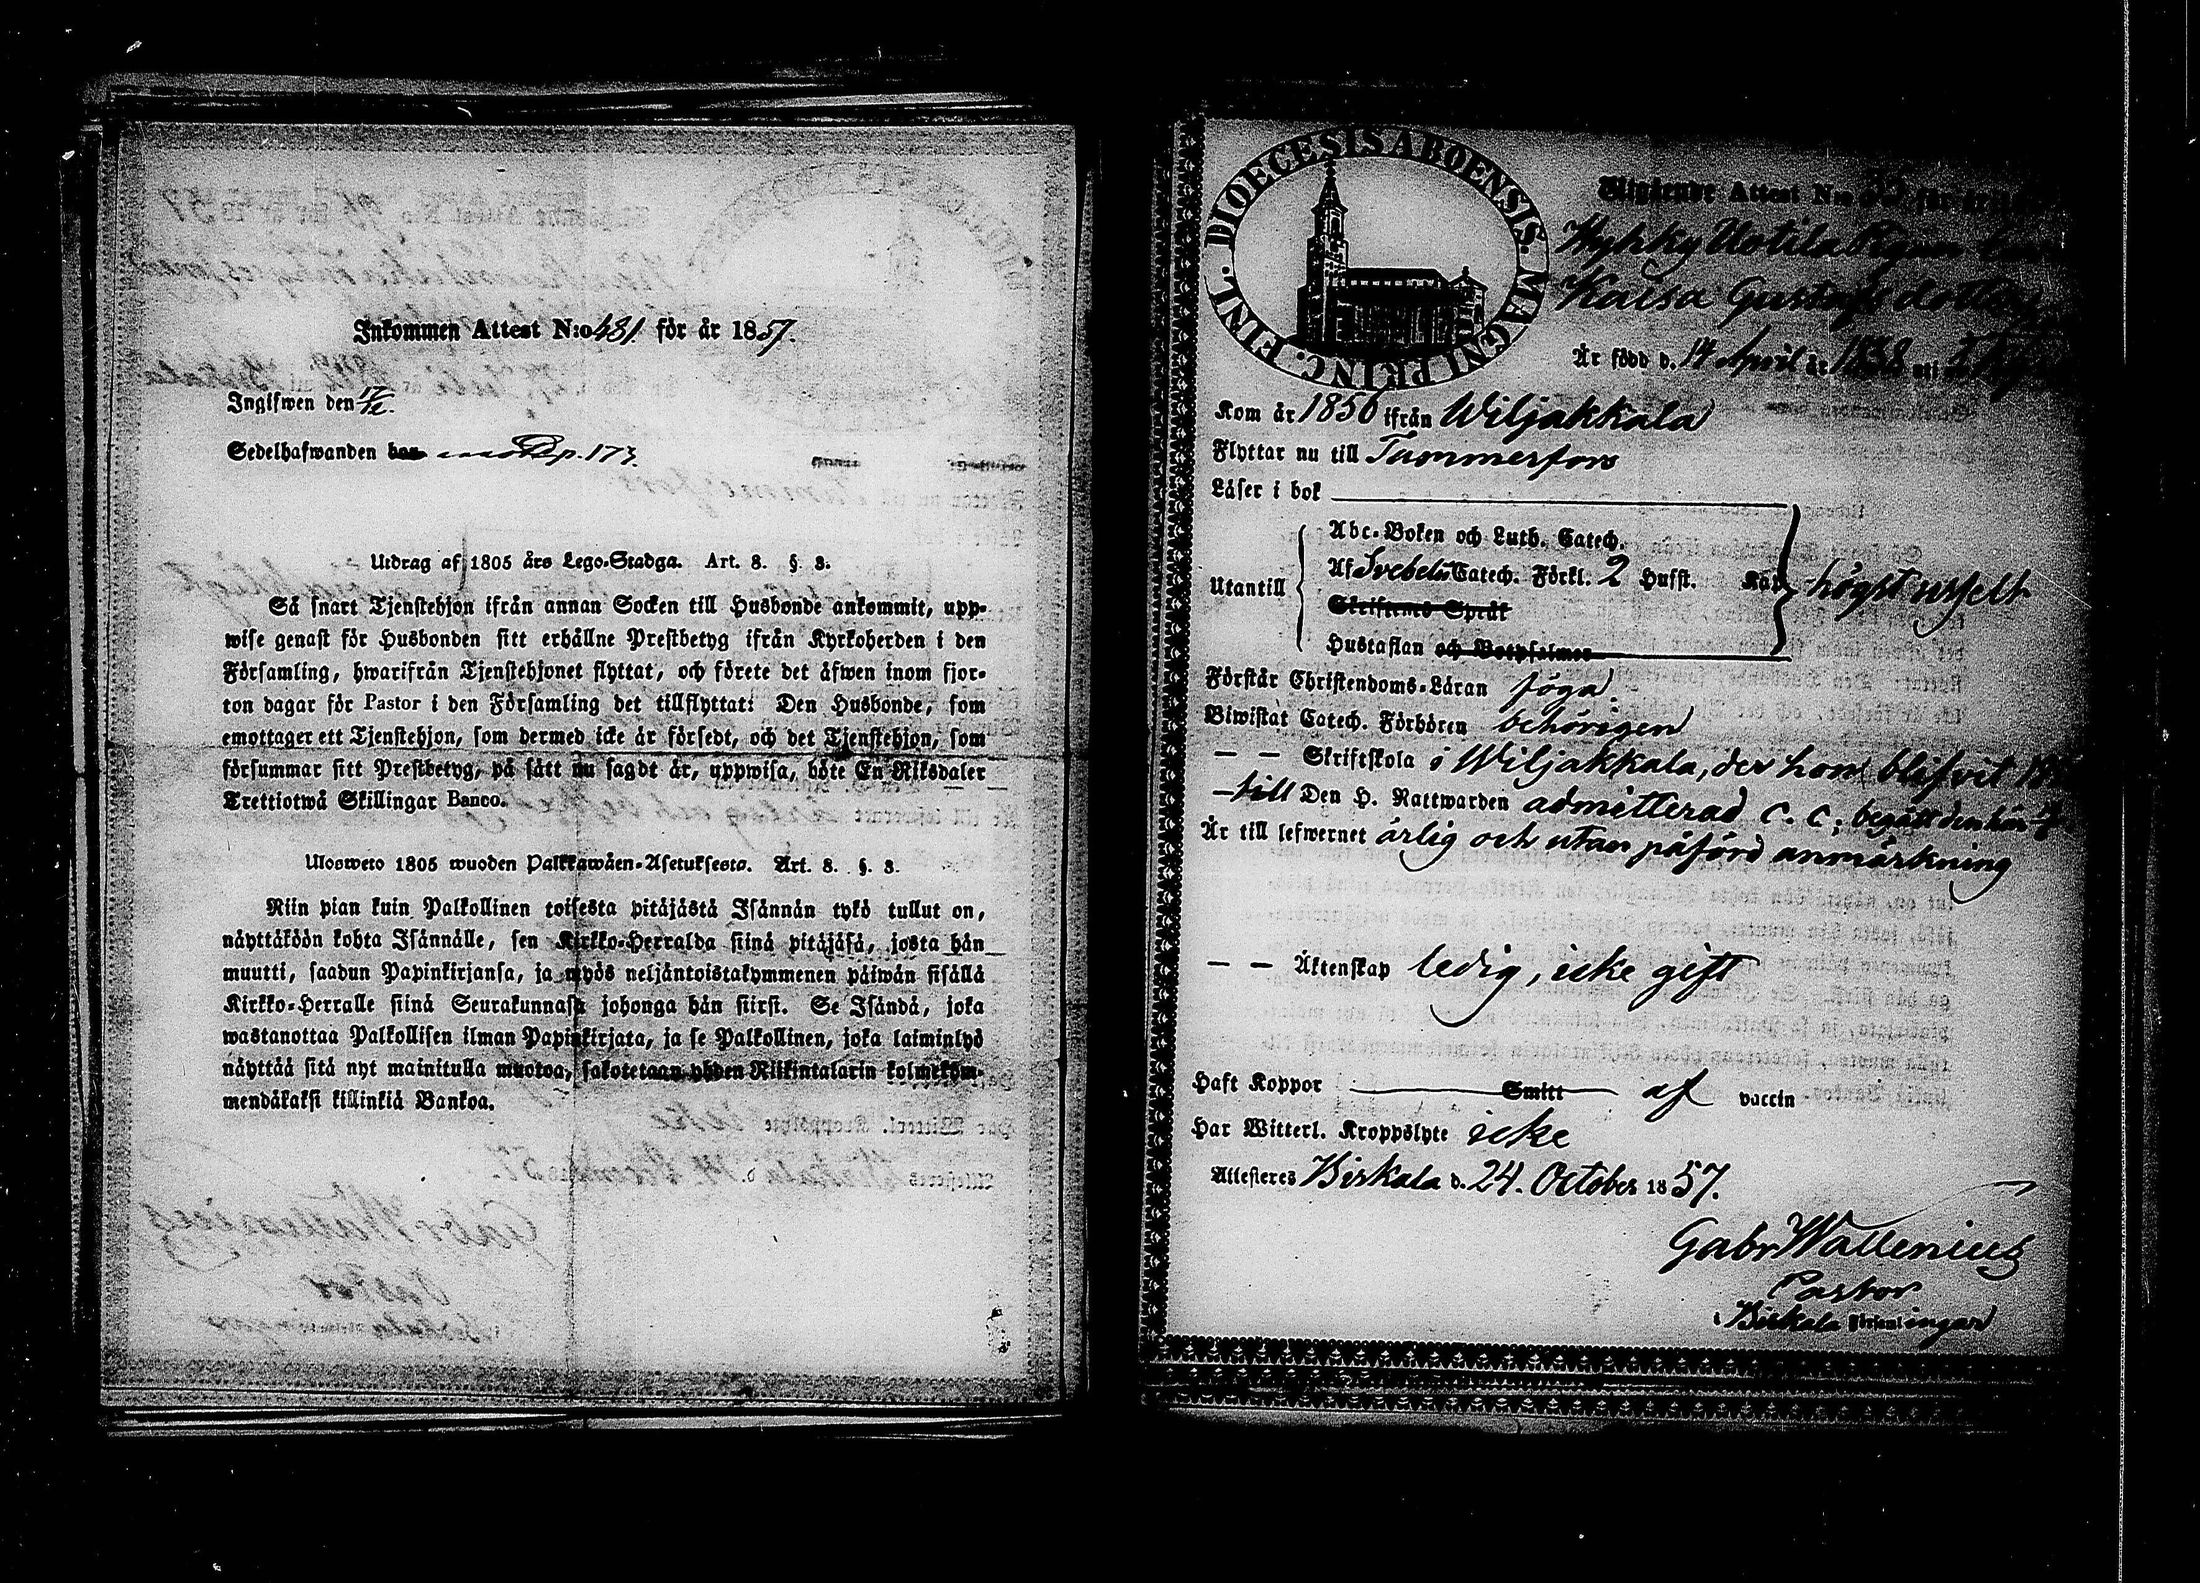 Inkommen Attest N:o 481. för år 1857.
Ingifwen den
Sedelhafwanden p. 173.
Utdrag af 1805 års Lego-Stadga. Art. 8. §. 3.
Så snart Tjenstehjon ifrån annan Socken till Husbonde ankommit, upp-
wise genast för Husbonden sitt erhållne Prestbetyg ifrån Kyrkoherden i den
Församling, hwarifrån Tjenstehjonet flyttat, och förete det äfwen inom fjor-
ton dagar för Pastor i den Församling det tillflyttat: Den Husbonde, som
emottager ett Tjenstehjon, som dermed icke är försedt, och det Tjenstehjon, som
försummar sitt Prestbetyg, på sätt nu sagdt är, uppwisa, böte En Riksdaler
Trettiotwå Skillingar Banco.
Ulosweto 1805 wuoden Palkkawäen-Asetuksesta. Art. 8. §. 3.
Niin pian kuin Palkollinen toisesta pitäjästä Isännän tykö tullut on,
näyttäköön kohta Isännälle, sen Kirkko-Herralda siinä pitäjäsä, josta hän
muutti, saadun Papinkirjansa, ja myös neljäntoistakymmenen päiwän sisällä
Kirkko-Herralle siinä Seurakunnasa johonga hän siirst. Se Isändä, joka
wastanottaa Palkollisen ilman Papinkirjata, ja se Palkollinen, joka laiminlyö
näyttää sitä nyt mainitulla muotoa, sakotetaan yhden Riikintalarin kolmeköm-
mendäkaksi killinkiä Bankoa.
DIOECESIS ABOENSIS. MAGNI PRINC. FINL.
Utgående Attest N:o 35 för år
Hyhky Uotila
Kaisa Gustafsdotter
Är född d. 14 April år 1838 uti
Kom år 1856 ifrån Wiljakkala
Flyttar nu till Tammerfors
Läser i bok
Abc-Boken och Luth. Catech.
Utantill Af Svebelii Catech. Förkl. 2 Hufst. högst uselt
Skriftenes Språk
Hustaflan och Botpsalmer
Förstår Christendoms-Läran föga.
Biwistat Catech. Förhören behörigen
— — Skriftskola i Wiljakkala, der hon blifvit
— till Den H. Nattwarden admitterad c. c; begått den här
Är till lefwernet ärlig och utan påförd anmärkning
— — Äktenskap ledig, icke gift
Haft Koppor Smitt af vaccin
Har Witterl. Kroppslyte icke
Attesteres Birkala d. 24. October 1857.
Gabr Wallenius
Pastor
i Birkala Församlingar